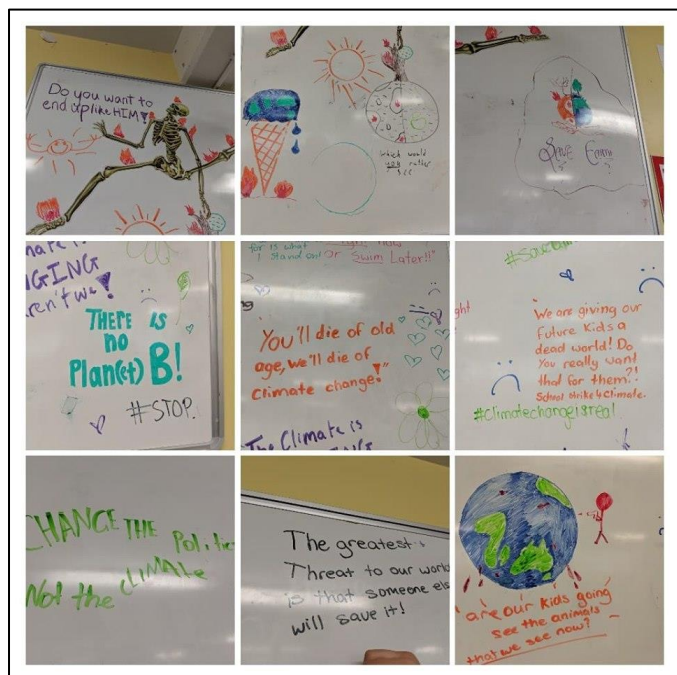 Do you want to
end up like HIM?
Which would
you rather
see
Save Earth
?
climate is
NGING
aren't we?
THERE IS
no
Plan(et) B!
#STOP.
for is what
I stand on!
Or Swim Later!!"
"You'll die of old
age, we'll die of
climate change!"
The Climate is
#Save
"We are giving our
future Kids a
dead world! Do
You really want
that for them?!
School strike 4 Climate.
#Climatechangeisreal
CHANGE THE Politic
Not the CLIMATE
The greatest
Threat to our world
is that someone els
will save it!
"are our kids going
see the animals
that we see now?"